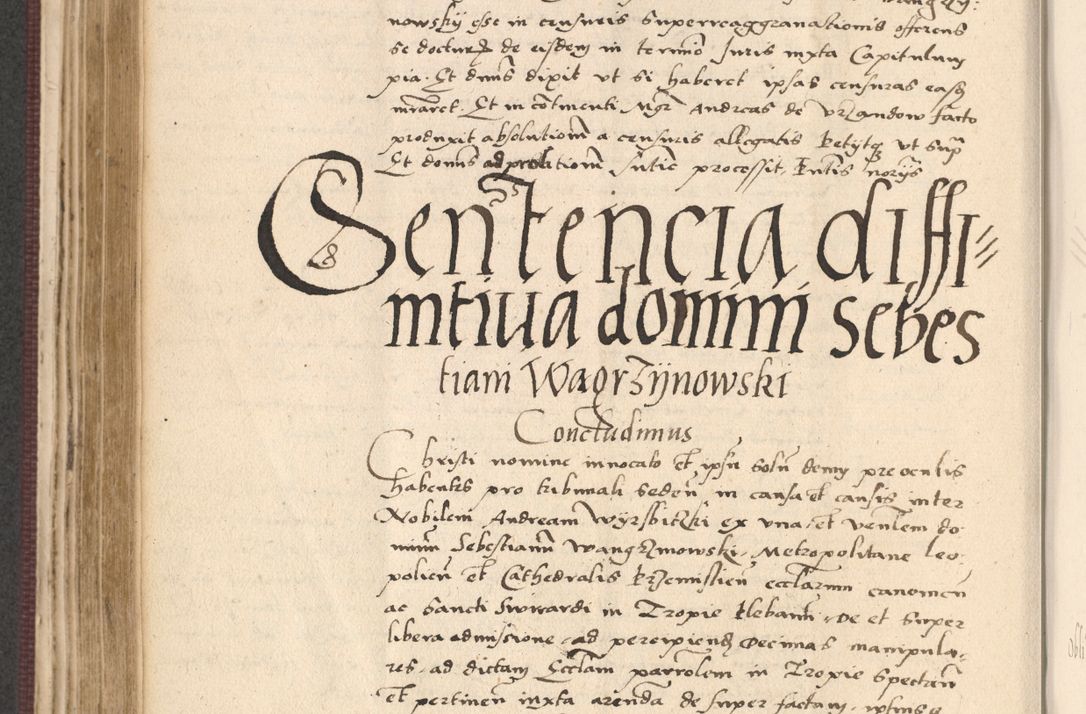 nowskÿ esse in censuris superreaggrauationis offerens
se docturum de eisdem in termino Juris iuxta Capitulum
pia. Et dnus dixit vt si haberet ipsas censuras easq
miraret. Et in continenti Mgr Andreas de Vrzandow facto
produxit absolutionem a censuris allegatis petÿtq vt sup
Et domns ad prolationem sntie processit pntis norÿs
Sentencia diffi
nitiua domini Sebes
tiani Wagrzÿnowski
Concludimus
Christi nomine innocato et ipsu solu deum pre oculis
habentes pro tribunali seden in causa et causis inter
Nobilem Andream Wÿrsbiczki ex vna et venlem do
minu Sebestianu Wangrzinowski, Metropolitane leo
polien et Cathedralis przemislien ecclarum canonicu
ac Sancti Swirardi in Tropie plebanu de et super
libera admissione ad percipiend decimas manipula
res, ad dictam Ecclam parrolem in Tropie spectan
et pertinen iuxta arenda de super factam,